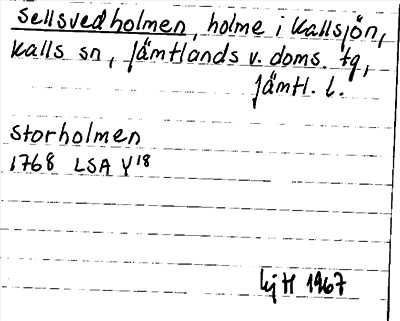 Sellsvedholmen, holme i Kallsjön,
Kalls sn, Jämtlands v. doms. tg,
Jämtl. l.
Storholmen
1768 LSA Y18
1967